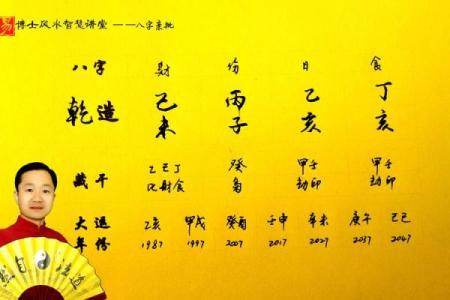 易 博士风水智慧讲堂 ——八字亲批
八字 財 伤 日 食
乾造 己未 丙子 乙亥 丁亥
藏干 乙己丁 癸 甲壬 甲壬
比財食 枭 劫印 劫印
大运 乙亥 甲戌 癸酉 壬申 辛未 庚午 己巳
年份 1987 1997 2007 2017 2027 2037 2047